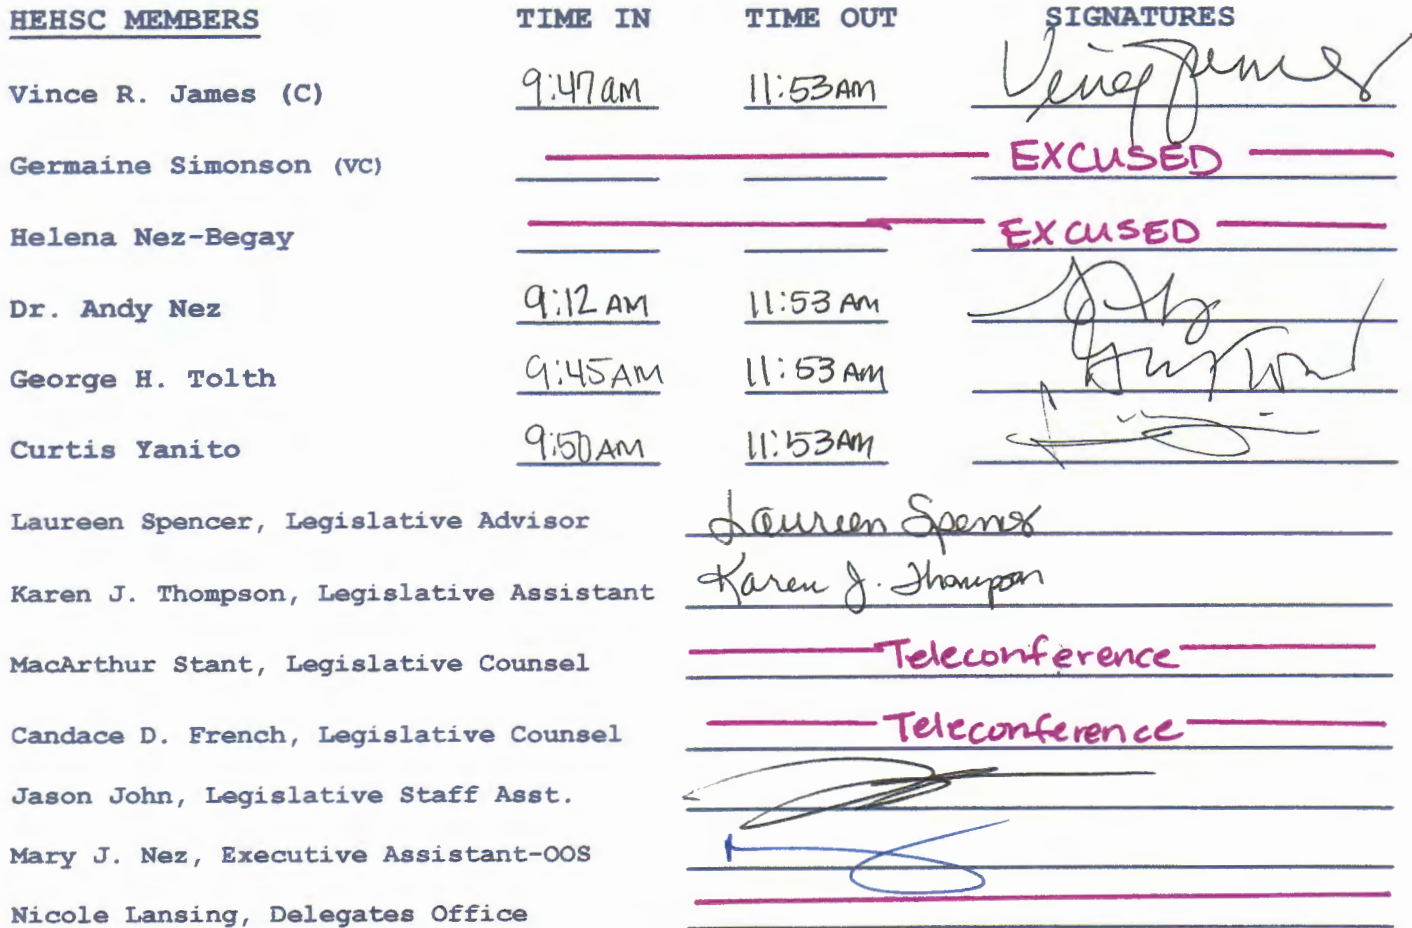 HEHSC MEMBERS TIME IN TIME OUT SIGNATURES
Vince R. James (C) 9:47am 11:53AM
Germaine Simonson (VC) EXCUSED
Helena Nez-Begay EXCUSED
Dr. Andy Nez 9:12 AM 11:53 AM
George H. Tolth 9:45AM 11:53 AM
Curtis Yanito 9:50AM 11:53AM
Laureen Spencer, Legislative Advisor Laureen Spencer
Karen J. Thompson, Legislative Assistant Karen J. Thompson
MacArthur Stant, Legislative Counsel Teleconference
Candace D. French, Legislative Counsel Teleconference
Jason John, Legislative Staff Asst.
Mary J. Nez, Executive Assistant-OOS
Nicole Lansing, Delegates Office